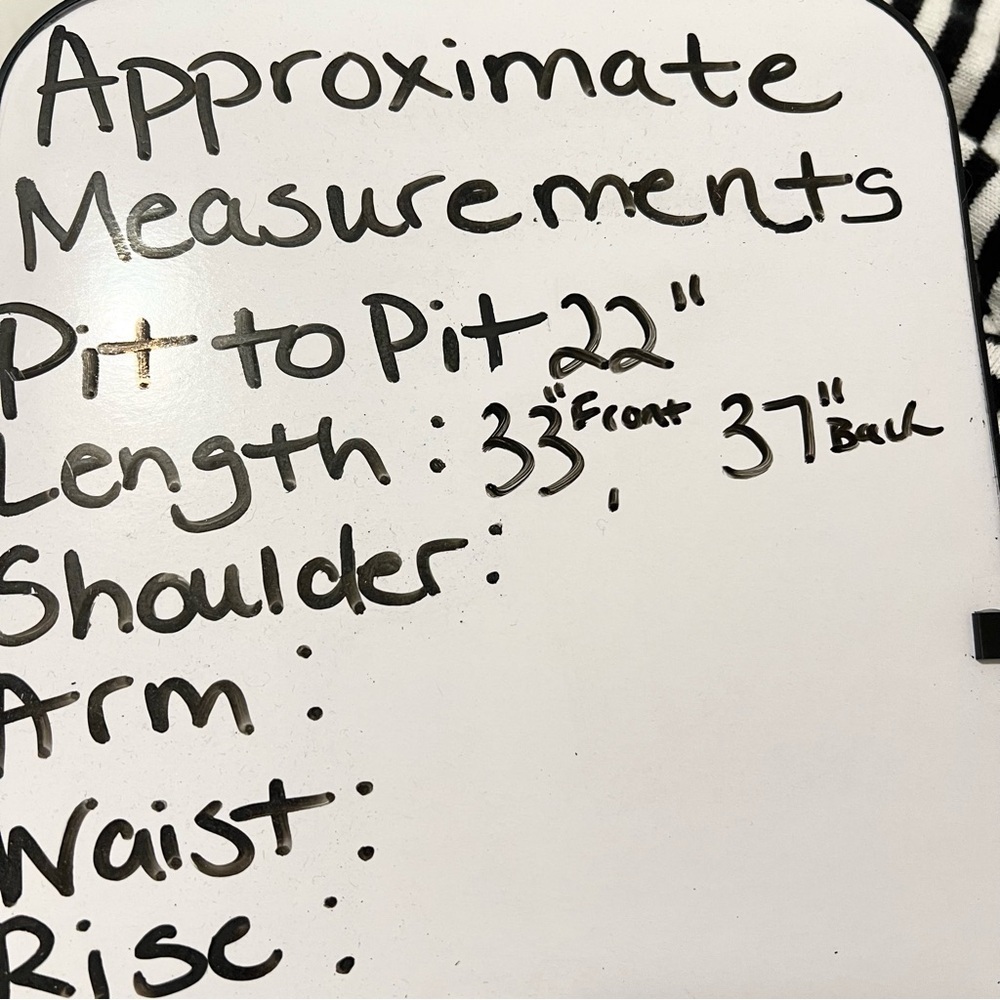 Approximate
Measurements
Pit to Pit 22"
Length: 33" Front 37" Back
Shoulder:
Arm:
Waist:
Rise: